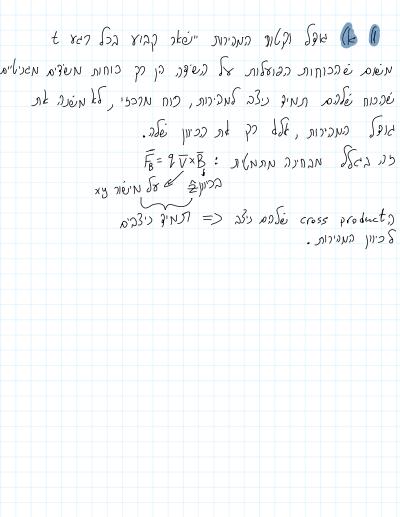 1) א) גודל וקטור המהירות יישאר קבוע בכל רגע t
משום שהכוחות הפועלות על השדה הן רק כוחות משדים מגנטיים
שהכוח שלהם תמיד ניצב למהירות, כוח מרכזי, לא משנה את
גודל המהירות, אלא רק את הכיוון שלה.
זה בגלל מבחינה מתמטית: F̄_B = q v̄ × B̄
בכיוון ẑ על מישור xy
ה cross product שלהם ניצב <= תמיד ניצבים
לכיוון המהירות.